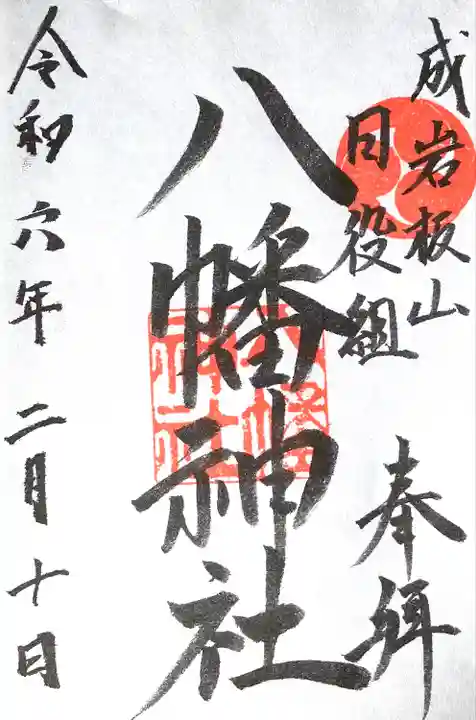 成岩板山
日役組
奉拝
八幡神社
八幡
神社
令和六年二月十日